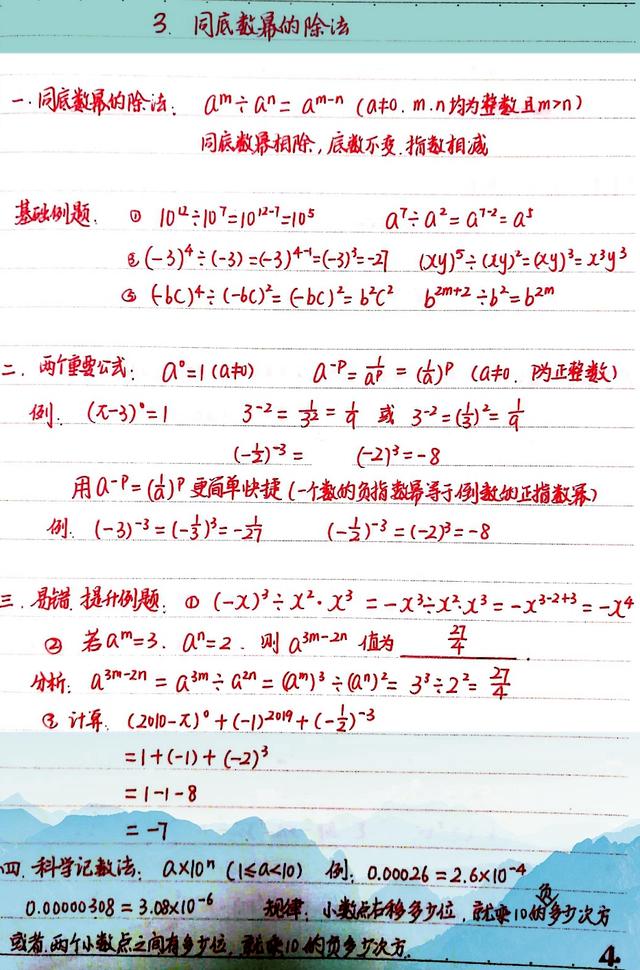 3. 同底数幂的除法
一.同底数幂的除法: aᵐ÷aⁿ=aᵐ⁻ⁿ (a≠0. m.n均为整数且m>n)
同底数幂相除,底数不变.指数相减
基础例题. ① 10¹²÷10⁷=10¹²⁻⁷=10⁵ a⁷÷a²=a⁷⁻²=a⁵
② (-3)⁴÷(-3)=(-3)⁴⁻¹=(-3)³=-27 (xy)⁵÷(xy)²=(xy)³=x³y³
③ (-bc)⁴÷(-bc)²=(-bc)²=b²c² b²ᵐ⁺²÷b²=b²ᵐ
二. 两个重要公式: a⁰=1(a≠0) a⁻ᴾ=1/aᴾ=(1/a)ᴾ (a≠0. P为正整数)
例: (π-3)⁰=1 3⁻²=1/3²=1/9 或 3⁻²=(1/3)²=1/9
(-1/2)⁻³= (-2)³=-8
用a⁻ᴾ=(1/a)ᴾ更简单快捷(一个数的负指数幂等于倒数的正指数幂)
例. (-3)⁻³=(-1/3)³=-1/27 (-1/2)⁻³=(-2)³=-8
三.易错.提升例题: ① (-x)³÷x²·x³=-x³÷x²·x³=-x³⁻²⁺³=-x⁴
② 若aᵐ=3. aⁿ=2. 则a³ᵐ⁻²ⁿ值为 27/4 .
分析: a³ᵐ⁻²ⁿ=a³ᵐ÷a²ⁿ=(aᵐ)³÷(aⁿ)²=3³÷2²=27/4
③ 计算. (2010-π)⁰+(-1)²⁰¹⁹+(-1/2)⁻³
=1+(-1)+(-2)³
=1-1-8
=-7
四.科学记数法: a×10ⁿ (1≤a<10) 例: 0.00026=2.6×10⁻⁴
0.00000308=3.08×10⁻⁶ 规律: 小数点右移多少位,就乘10的负多少次方
或者.两个小数点之间有多少位,就乘10的负多少次方.
4.